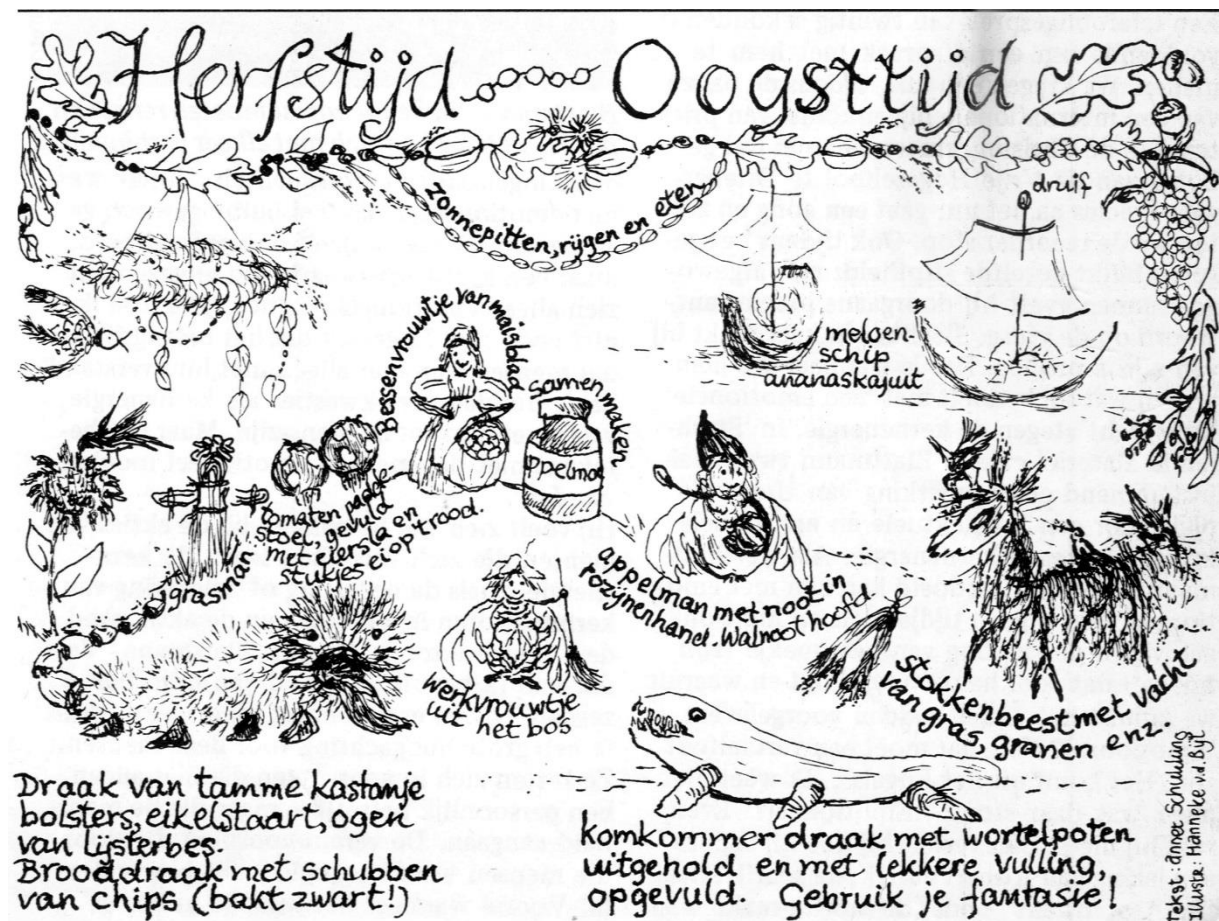 Herfsttijd Oogsttijd
zonnepitten, rijgen en eten
druif
meloen-
schip
ananaskajuit
Bessenvrouwtje van maisblad
samen maken
appelmoes
tomaten padde
stoel, gevuld
met eiersla en
stukjes ei op 't rood.
grasman
appelman met noot in
rozijnenhand. Walnoot hoofd
werkvrouwtje
uit het bos
stokkenbeest met vacht
van gras, granen enz
Draak van tamme kastanje
bolsters, eikelstaart, ogen
van lijsterbes.
Brooddraak met schubben
van chips (bakt zwart!)
Komkommer draak met wortelpoten
uitgehold en met lekkere vulling,
opgevuld. Gebruik je fantasie!
tekst: Loes Schulling
Illustr: Hanneke v.d. Bijl